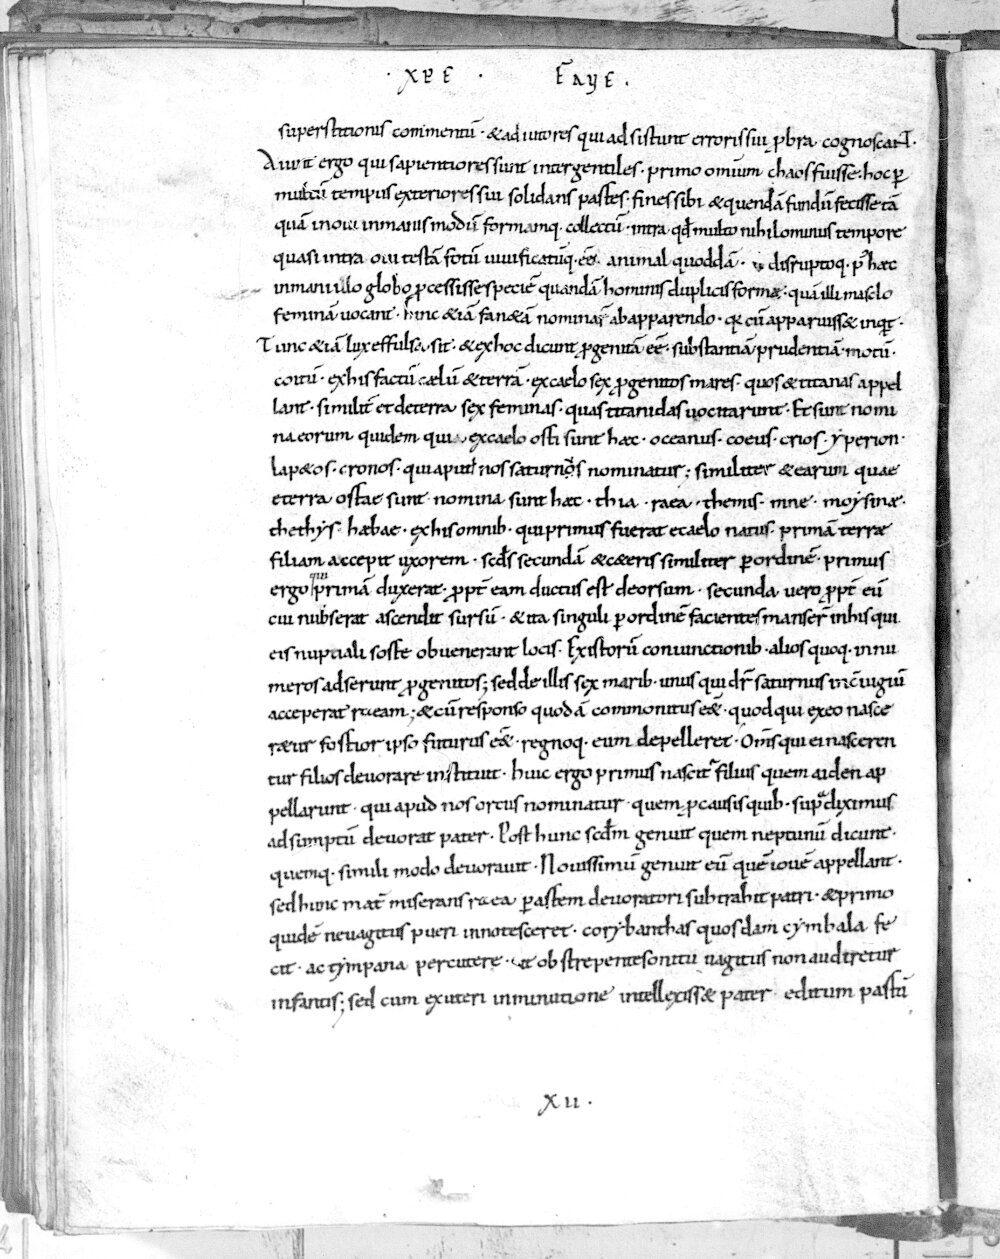 · XPE · FAVE ·
superstitionis commentū · & adiutores qui adsistunt erroris sui ꝓbra cognoscant ·
Aiunt ergo qui sapientiores sunt inter gentiles · primo omniū chaos fuisse · hoc ꝑ
multū tempus exteriores sui solidans partes · fines sibi & quendā fundū fecisse tā
quā in oui inmanis modū formamq · collectū · intra qđ multo nihilominus tempore
quasi intra oui testā fotū uiuificatūq · eē · animal quoddā · disruptoq · p̄ hæc
inmani illo globo ꝓcessisse speciē quandā hominis duplicis formæ · quā illi masclo
feminā uocant · hinc &iā fan&ā nominar̄ ab apparendo · q cū apparuiss& inqt ·
Tunc &iā lux effulsit · & ex hoc dicunt ꝓgenitā eē · substantiā prudentiā motū ·
coitū · ex his factū cælū & terrā · ex caelo sex ꝓgenitos mares · quos & titanas appel
lant · similit̄ et de terra sex feminas · quas titanidas uocitarunt · Et sunt nomi
na eorum quidem qui ex caelo orti sunt hæc · oceanus · coeus · crios · yperion ·
lap&os · cronos · qui aput nos saturnus nominatur ; similiter & earum quae
e terra ortae sunt nomina sunt hæc · thia · raea · themis · mne · moysinæ ·
thethys · hæbae · ex his omnib · qui primus fuerat e caelo natus · primā terræ
filiam accepit uxorem · scđs secundā & c&eris similiter ꝑ ordinē · primus
ergo qui primā duxerat · ꝓpt̄ eam ductus est deorsum · secunda uero ꝓpt̄ eū
cui nubserat ascendit sursū · & ita singuli ꝑ ordinē facientes manser̄ in his qui
eis nuptiali sorte obuenerant locis · Ex istorū coniunctionib · alios quoq · innu
meros adserunt ꝓgenitos ; sed de illis sex marib · unus qui dr̄ saturnus in c̄iugiū
acceperat raeam ; & cū responso quodā commonitus eē& · quod qui ex eo nasce
r&ur fortior ipso futurus eē& · regnoq · eum depelleret · Om̄s qui ei nasceren
tur filios deuorare instituit · huic ergo primus nascit̄ filius quem aiden ap
pellarunt · qui apud nos orcus nominatur · quem ꝓ causis quib · supra diximus
adsumptū deuorat pater · Post hunc scđm genuit quem neptunū dicunt ·
quemq · simili modo deuorauit · Nouissimū genuit eū quē iouē appellant ·
sed hunc mat̄ miserans raea ꝑ artem deuoratori subtrahit patri · & primo
quidē ne uagitus pueri innotesceret · corybanthas quosdam cymbala fe
cit · ac tympana percutere · ut obstrepente sonitu uagitus non audiretur
infantis ; sed cum ex uteri inminutione intellexiss& pater editum partū
XII ·